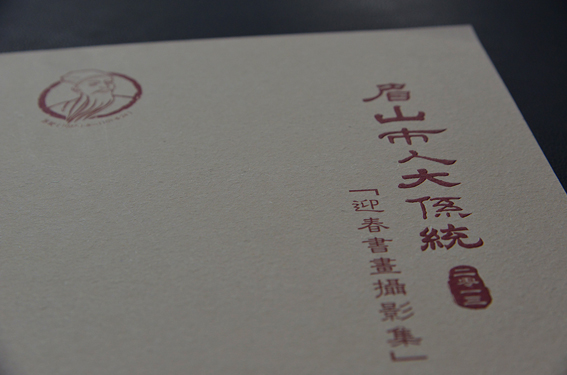 眉山市人大係統
「迎春書畫攝影集」
二零一三